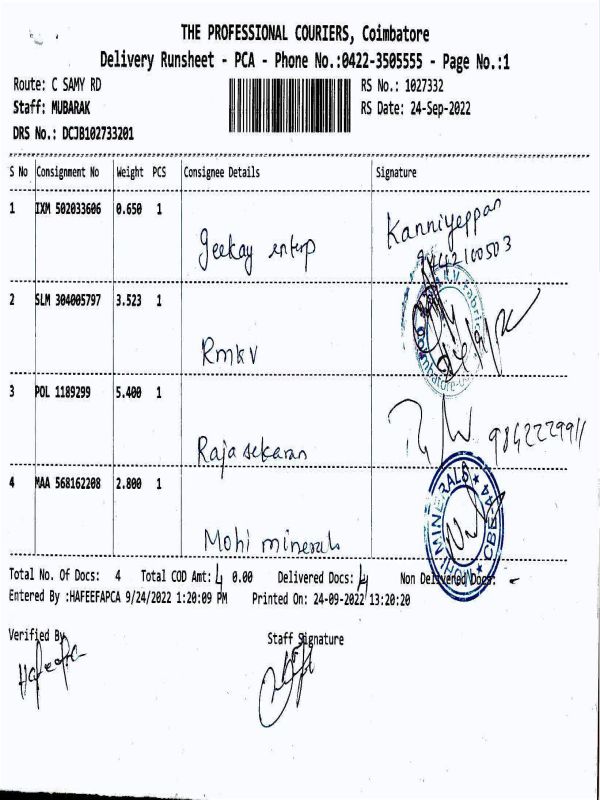 THE PROFESSIONAL COURIERS, Coimbatore
Delivery Runsheet - PCA - Phone No.:0422-3505555 - Page No.:1
Route: C SAMY RD RS No.: 1027332
Staff: MUBARAK RS Date: 24-Sep-2022
DRS No.: DCJB102733201
S No Consignment No Weight PCS Consignee Details Signature
1 IXM 502033606 0.650 1
Kanniyeppan
geekay enterp 9442100503
2 SLM 304005797 3.523 1
Rmkv
3 POL 1189299 5.400 1
9842229911
Rajasekaran
4 MAA 568162208 2.800 1
MOHI MINERALS ★ CBE-44 ★
Mohi minerals
Total No. Of Docs: 4 Total COD Amt: 4 0.00 Delivered Docs: 4 Non Delivered Docs: -
Entered By :HAFEEFAPCA 9/24/2022 1:20:09 PM Printed On: 24-09-2022 13:20:20
Verified By Staff Signature
Hafeefa